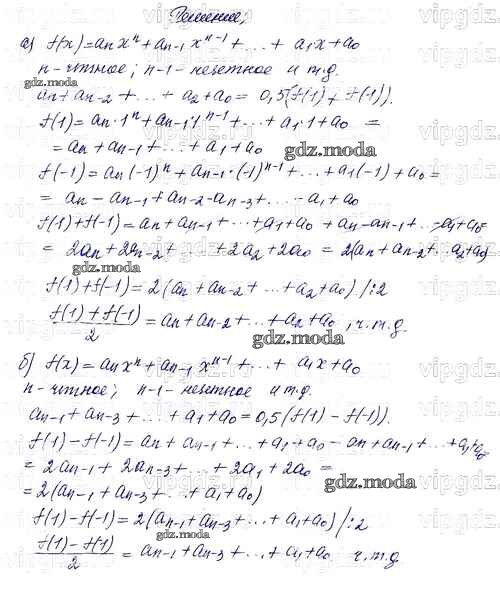 Решение;
а) f(x)=aₙxⁿ+aₙ₋₁xⁿ⁻¹+...+a₁x+a₀
n-чётное; n-1-нечетное и т.д.
gdz.moda
aₙ+aₙ₋₂+...+a₂+a₀=0,5(f(1)+f(-1)).
f(1)=aₙ·1ⁿ+aₙ₋₁·1ⁿ⁻¹+...+a₁·1+a₀=
=aₙ+aₙ₋₁+...+a₁+a₀
gdz.moda
f(-1)=aₙ(-1)ⁿ+aₙ₋₁·(-1)ⁿ⁻¹+...+a₁(-1)+a₀=
=aₙ-aₙ₋₁+aₙ₋₂-aₙ₋₃+...-a₁+a₀
f(1)+f(-1)=aₙ+aₙ₋₁+...+a₁+a₀+aₙ-aₙ₋₁+...-a₁+a₀=
=2aₙ+2aₙ₋₂+...+2a₂+2a₀=2(aₙ+aₙ₋₂+...a₂+a₀)
gdz.moda
f(1)+f(-1)=2(aₙ+aₙ₋₂+...+a₂+a₀)/:2
(f(1)+f(-1))/2=aₙ+aₙ₋₂+...+a₂+a₀, ч.т.д.
gdz.moda
б) f(x)=aₙxⁿ+aₙ₋₁xⁿ⁻¹+...+a₁x+a₀
n-чётное; n-1-нечетное и т.д.
aₙ₋₁+aₙ₋₃+...+a₁+a₀=0,5(f(1)-f(-1)).
f(1)-f(-1)=aₙ+aₙ₋₁+...+a₁+a₀-aₙ+aₙ₋₁+...+a₁-a₀
=2aₙ₋₁+2aₙ₋₃+...+2a₁+2a₀=
gdz.moda
=2(aₙ₋₁+aₙ₋₃+...+a₁+a₀)
f(1)-f(-1)=2(aₙ₋₁+aₙ₋₃+...+a₁+a₀)/:2
(f(1)-f(1))/2=aₙ₋₁+aₙ₋₃+...+a₁+a₀ ч.т.д
gdz.moda